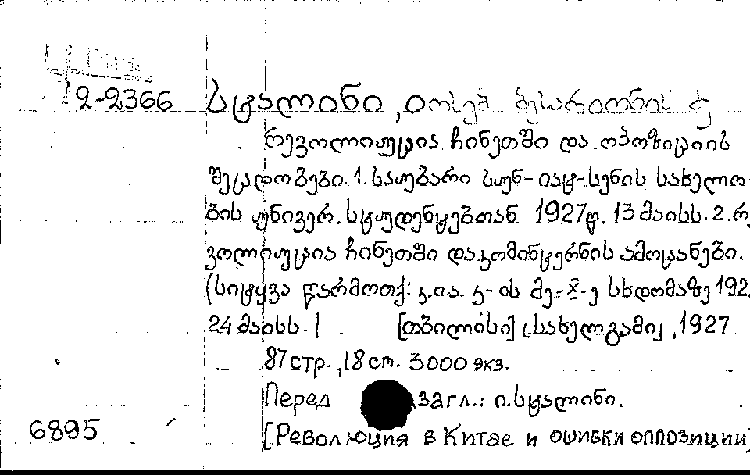 2-2366 სტალინი, იოსებ ბესარიონის ძე
რევოლიუცია ჩინეთში და ოპოზიციის
შეცდომები. 1. საუბარი სუნ-იატ-სენის სახელო-
ბის უნივერ. სტუდენტებთან 1927წ. 13 მაისს. 2. რე
ვოლიუცია ჩინეთში და კომინტერნის ამოცანები.
(სიტყვა წარმოთქ. კ.ი.ა. კ-ის მე-X-ე სხდომაზე 192
24 მაისს.) [თბილისი] სახელგამი, 1927
87 стр., 18 см. 3000 экз.
Перед загл.: ი. სტალინი.
6895 [Революция в Китае и ошибки оппозиции